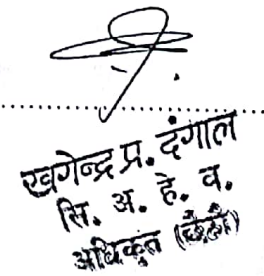 खगेन्द्र प्र. दंगाल
सि. अ. हे. व.
अधिकृत (छैठौं)